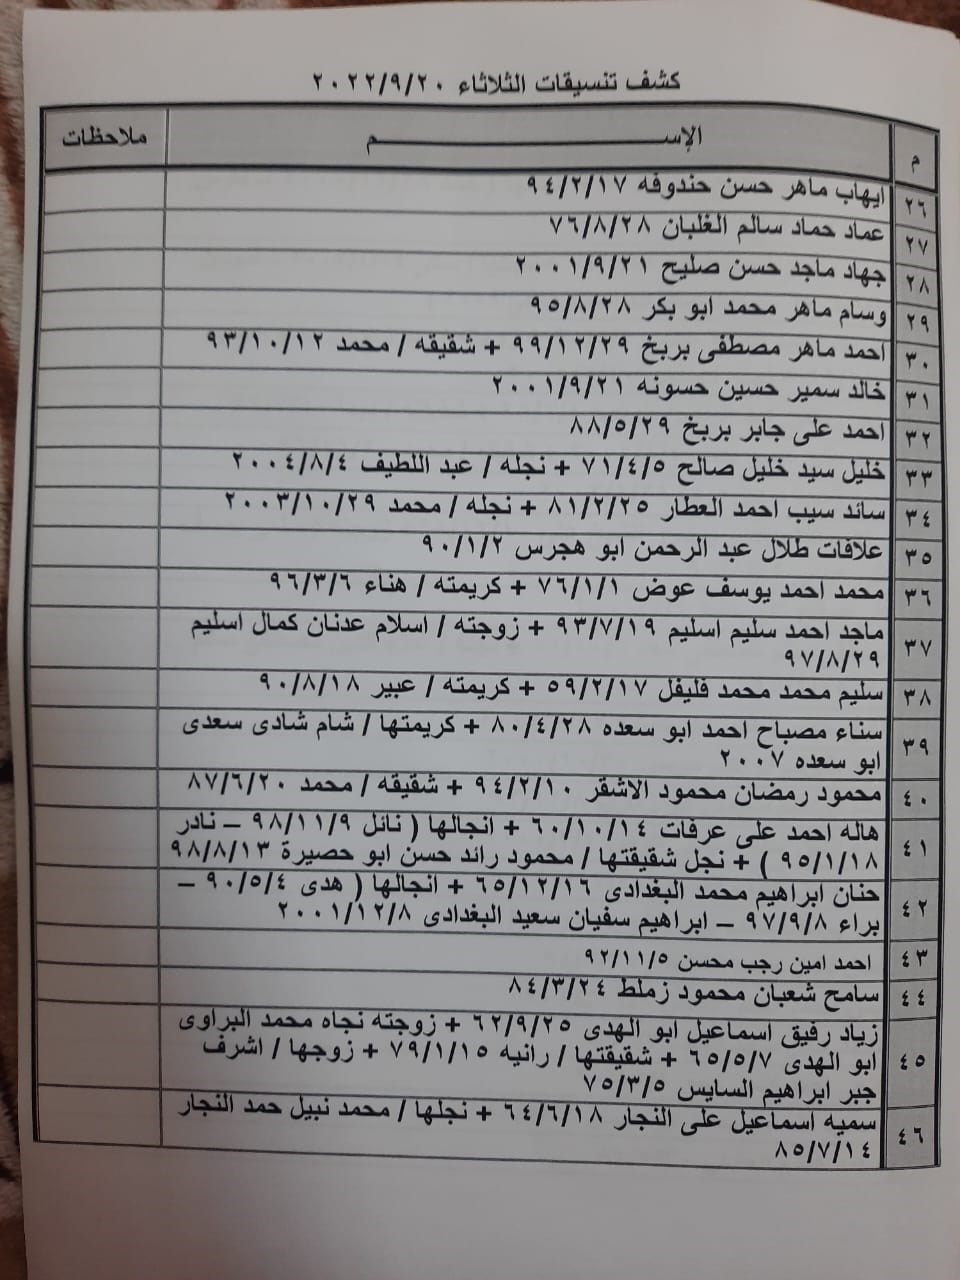 كشف تنسيقات الثلاثاء ٢٠٢٢/٩/٢٠
م الإســـــــــــم ملاحظات
٢٦ ايهاب ماهر حسن حندوفه ٩٤/٢/١٧
٢٧ عماد حماد سالم الغلبان ٧٦/٨/٢٨
٢٨ جهاد ماجد حسن صليح ٢٠٠١/٩/٢١
٢٩ وسام ماهر محمد ابو بكر ٩٥/٨/٢٨
٣٠ احمد ماهر مصطفى بربخ ٩٩/١٢/٢٩ + شقيقه / محمد ٩٣/١٠/١٢
٣١ خالد سمير حسين حسونه ٢٠٠١/٩/٢١
٣٢ احمد على جابر بربخ ٨٨/٥/٢٩
٣٣ خليل سيد خليل صالح ٧١/٤/٥ + نجله / عبد اللطيف ٢٠٠٤/٨/٤
٣٤ سائد سيب احمد العطار ٨١/٢/٢٥ + نجله / محمد ٢٠٠٣/١٠/٢٩
٣٥ علافات طلال عبد الرحمن ابو هجرس ٩٠/١/٢
٣٦ محمد احمد يوسف عوض ٧٦/١/١ + كريمته / هناء ٩٦/٣/٦
٣٧ ماجد احمد سليم اسليم ٩٣/٧/١٩ + زوجته / اسلام عدنان كمال اسليم
٩٧/٨/٢٩
٣٨ سليم محمد محمد فليفل ٥٩/٢/١٧ + كريمته / عبير ٩٠/٨/١٨
٣٩ سناء مصباح احمد ابو سعده ٨٠/٤/٢٨ + كريمتها / شام شادى سعدى
ابو سعده ٢٠٠٧
٤٠ محمود رمضان محمود الاشقر ٩٤/٢/١٠ + شقيقه / محمد ٨٧/٦/٢٠
٤١ هاله احمد على عرفات ٦٠/١٠/١٤ + انجالها ( نائل ٩٨/١١/٩ – نادر
٩٥/١/١٨ ) + نجل شقيقتها / محمود رائد حسن ابو حصيرة ٩٨/٨/١٣
٤٢ حنان ابراهيم محمد البغدادى ٦٥/١٢/١٦ + انجالها ( هدى ٩٠/٥/٤ –
براء ٩٧/٩/٨ – ابراهيم سفيان سعيد البغدادى ٢٠٠١/١٢/٨
٤٣ احمد امين رجب محسن ٩٢/١١/٥
٤٤ سامح شعبان محمود زملط ٨٤/٣/٢٤
٤٥ زياد رفيق اسماعيل ابو الهدى ٦٢/٩/٢٥ + زوجته نجاه محمد البراوى
ابو الهدى ٦٥/٥/٧ + شقيقتها / رانيه ٧٩/١/١٥ + زوجها / اشرف
جبر ابراهيم السايس ٧٥/٣/٥
٤٦ سميه اسماعيل على النجار ٦٤/٦/١٨ + نجلها / محمد نبيل حمد النجار
٨٥/٧/١٤